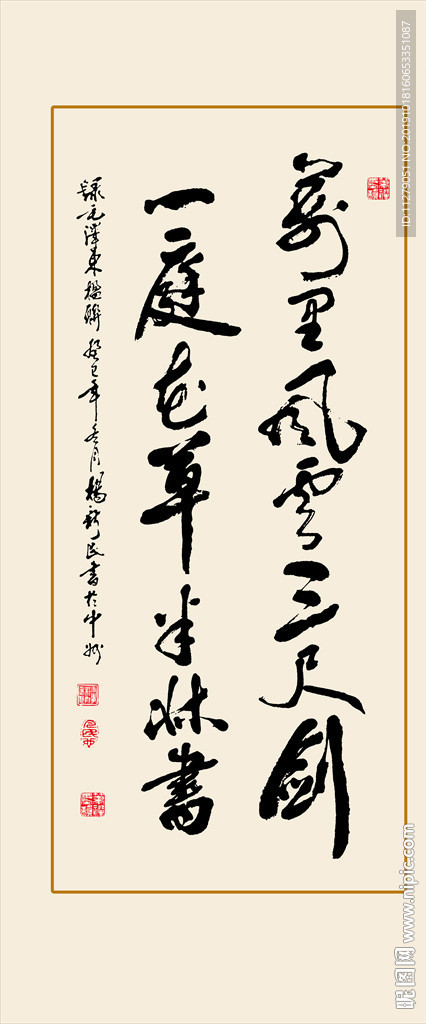 萬里風雲三尺劍
一庭花草半牀書
錄毛澤東楹聯 癸巳年冬月楊新民書於中州
ID:11279051 NO:20191018160653351087
昵图网 www.nipic.com